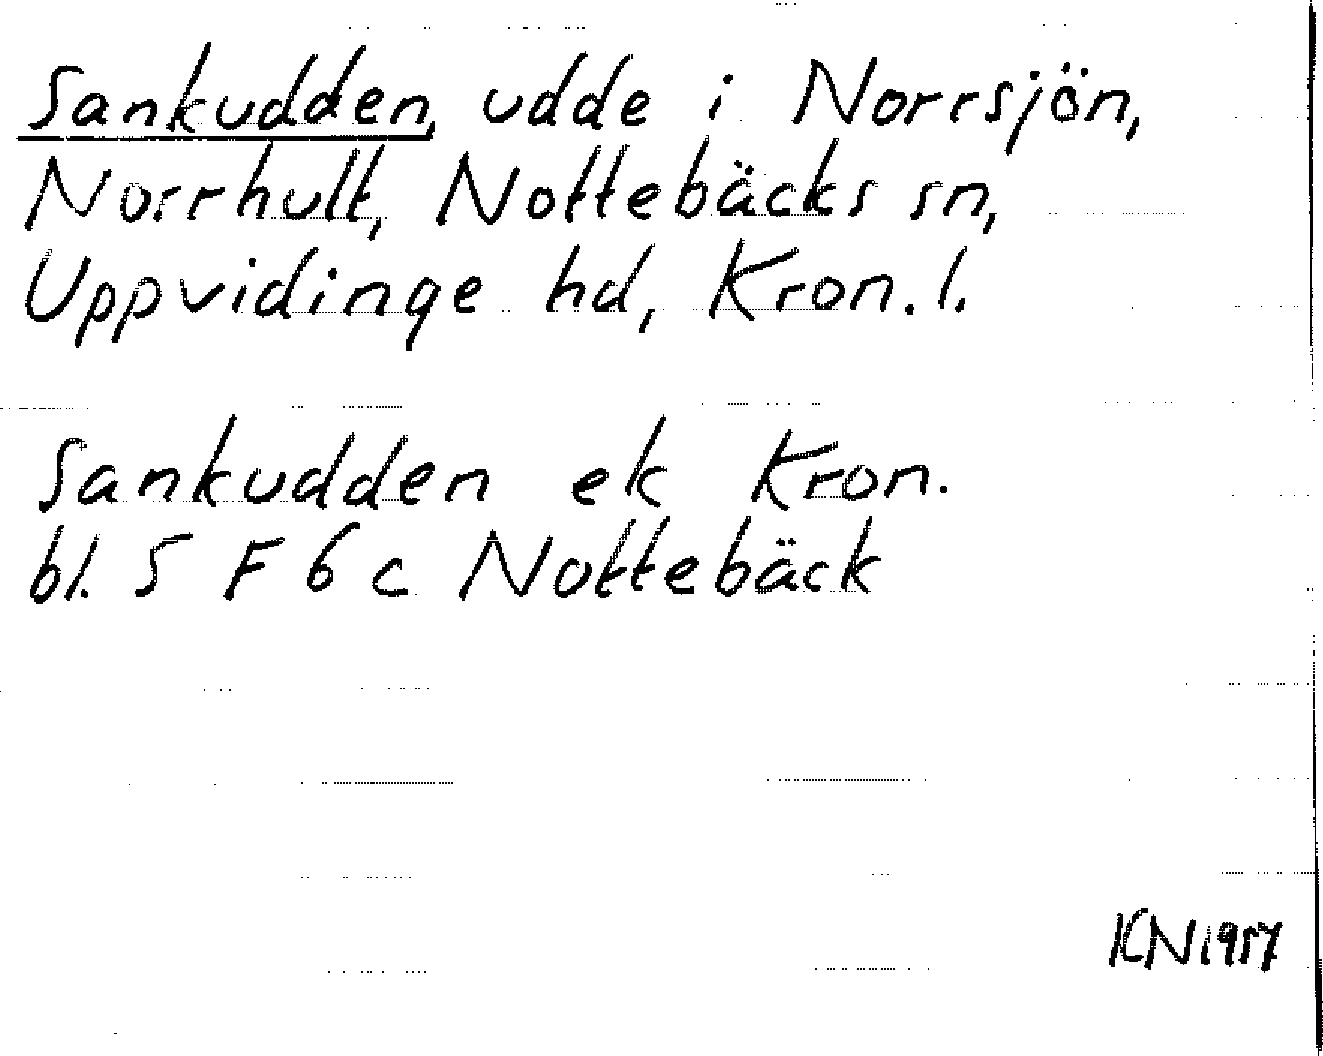 Sankudden, udde i Norrsjön,
Norrhult, Nottebäcks sn,
Uppvidinge hd, Kron. l.
Sankudden ek Kron.
bl. 5 F 6 c Nottebäck
KN 1957